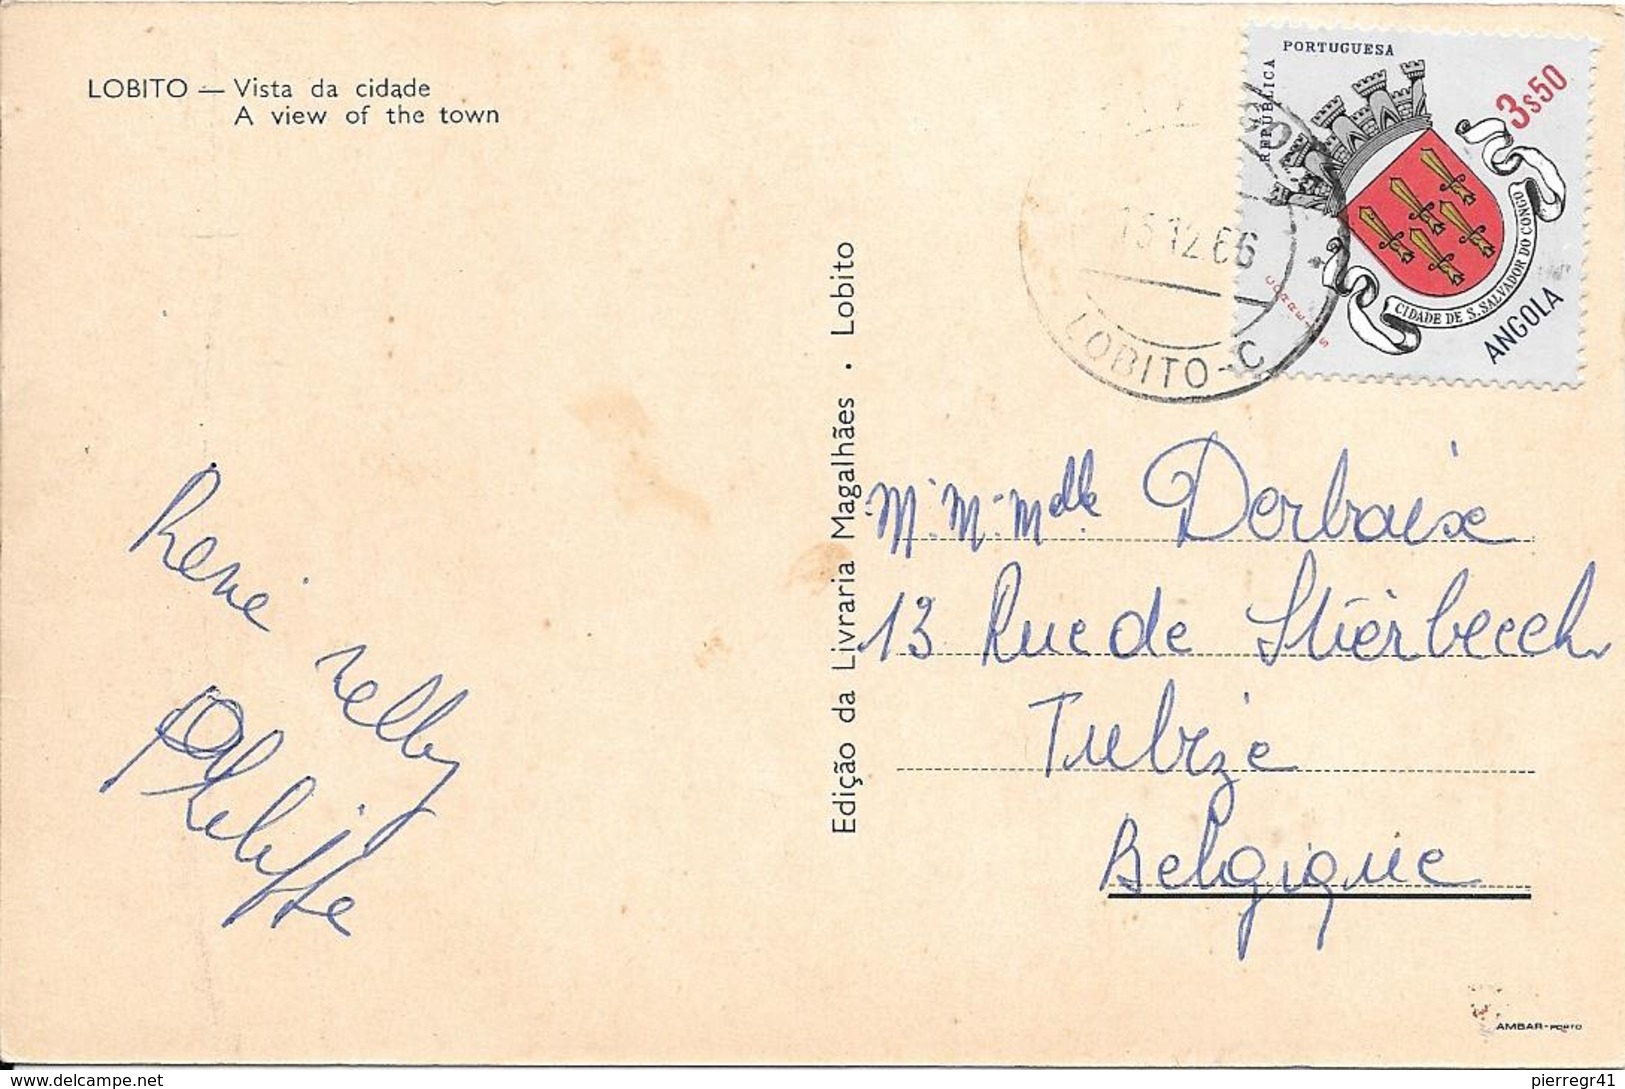 LOBITO — Vista da cidade
A view of the town
REPÚBLICA PORTUGUESA
3$50
CIDADE DE S. SALVADOR DO CONGO
CORREIOS
ANGOLA
12.66
LOBITO-C
Edição da Livraria Magalhães . Lobito
René Nelly
Philippe
M. M. Mdlle Derbaix
13 Rue de Stierbecch
Tubize
Belgique
AMBAR-PORTO
pierregr41